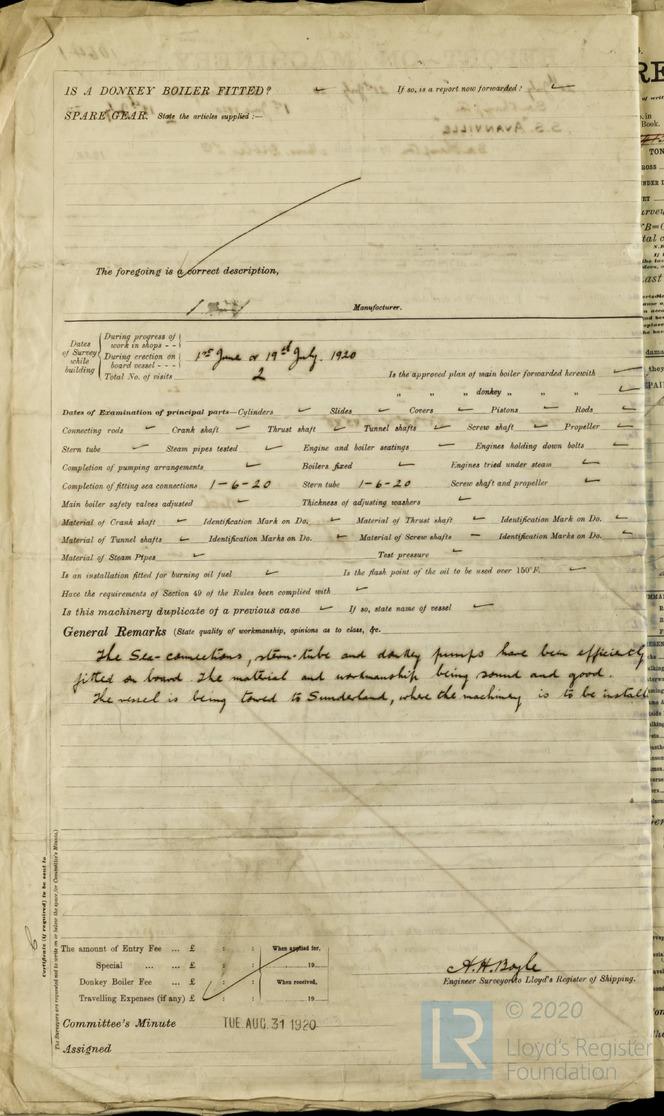 IS A DONKEY BOILER FITTED? If so, is a report now forwarded?
SPARE GEAR. State the articles supplied :—
S.S. AVANVILLE
The foregoing is a correct description,
Manufacturer.
Dates of Survey while building
During progress of work in shops - -
During erection on board vessel - - - 1st June & 19th July. 1920
Total No. of visits 2 Is the approved plan of main boiler forwarded herewith
" " " donkey " " "
Dates of Examination of principal parts—Cylinders Slides Covers Pistons Rods
Connecting rods Crank shaft Thrust shaft Tunnel shafts Screw shaft Propeller
Stern tube Steam pipes tested Engine and boiler seatings Engines holding down bolts
Completion of pumping arrangements Boilers fixed Engines tried under steam
Completion of fitting sea connections 1-6-20 Stern tube 1-6-20 Screw shaft and propeller
Main boiler safety valves adjusted Thickness of adjusting washers
Material of Crank shaft Identification Mark on Do. Material of Thrust shaft Identification Mark on Do.
Material of Tunnel shafts Identification Marks on Do. Material of Screw shafts Identification Marks on Do.
Material of Steam Pipes Test pressure
Is an installation fitted for burning oil fuel Is the flash point of the oil to be used over 150°F.
Have the requirements of Section 49 of the Rules been complied with
Is this machinery duplicate of a previous case If so, state name of vessel
General Remarks (State quality of workmanship, opinions as to class, &c.
The Sea-connections, stern-tube and donkey pumps have been efficiently
fitted on board. The material and workmanship being sound and good.
The vessel is being towed to Sunderland, where the machinery is to be install
Certificate (if required) to be sent to
(The Surveyors are requested not to write on or below the space for Committee's Minute.)
The amount of Entry Fee ... £ : : When applied for,
Special ... ... £ : : 19
Donkey Boiler Fee ... £ : : When received,
Travelling Expenses (if any) £ : : 19
A.H. Boyle
Engineer Surveyor to Lloyd's Register of Shipping.
Committee's Minute TUE. AUG. 31 1920
Assigned
LR © 2020
Lloyd's Register
Foundation